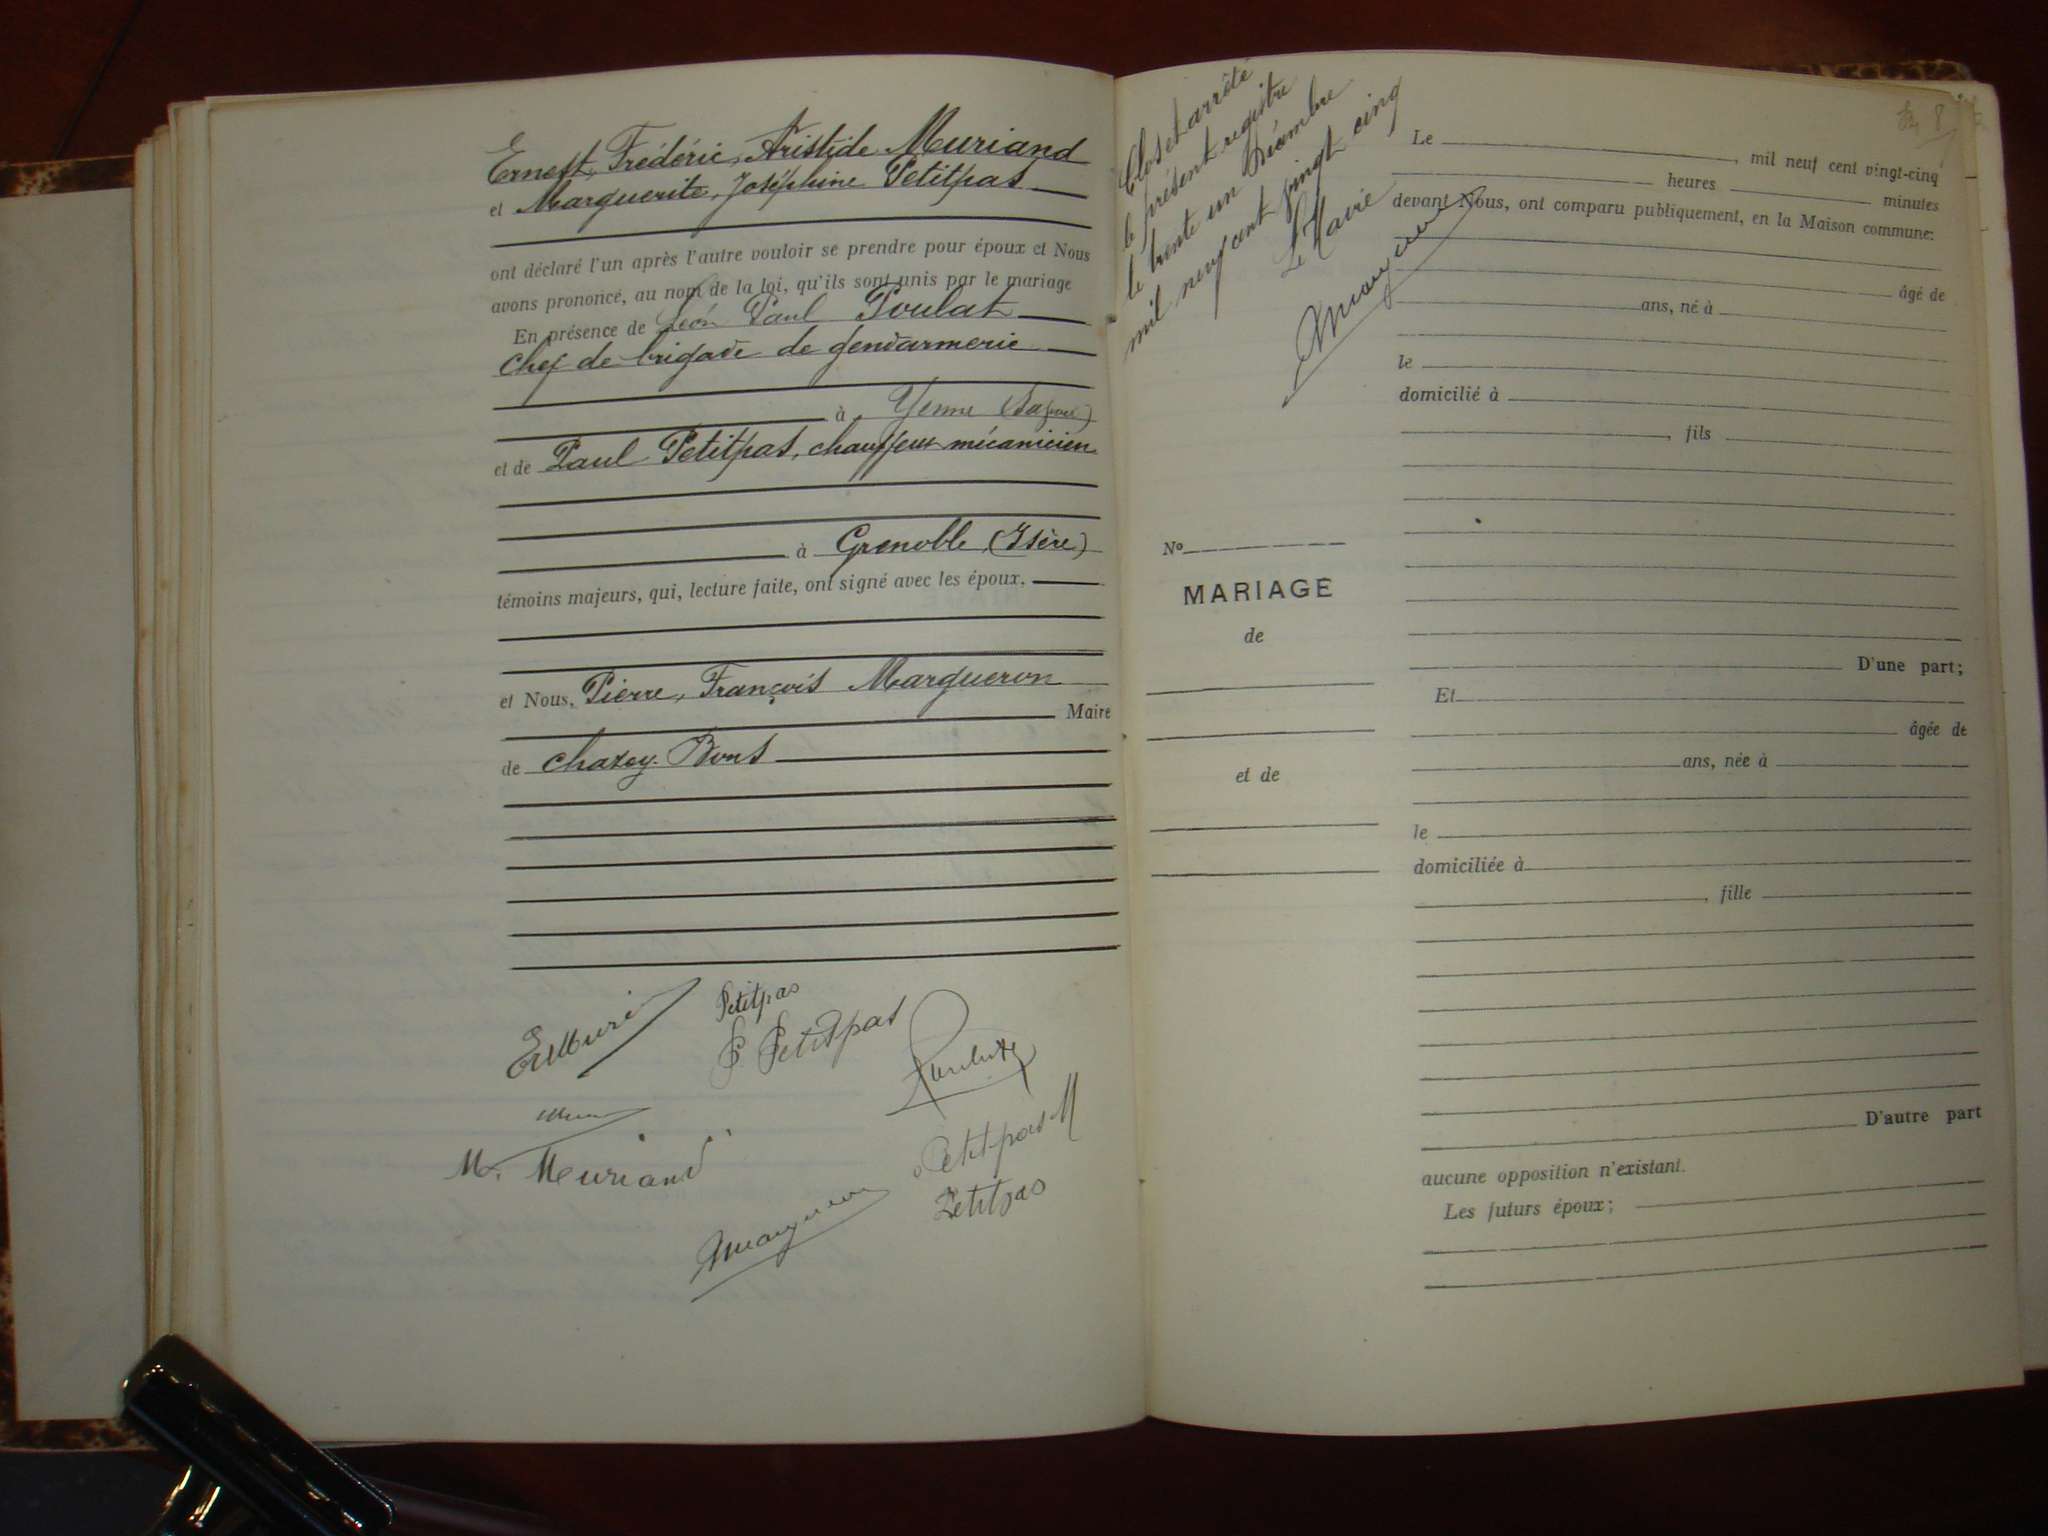 Ernest, Frédéric, Aristide Muriand
et Marguerite, Joséphine Petitpas
ont déclaré l'un après l'autre vouloir se prendre pour époux et Nous
avons prononcé, au nom de la loi, qu'ils sont unis par le mariage
En présence de Léon Paul Poulat
chef de brigade de gendarmerie
à Yenne (Savoie)
et de Paul Petitpas, chauffeur mécanicien
à Grenoble (Isère)
témoins majeurs, qui, lecture faite, ont signé avec les époux.
et Nous, Pierre, François Margueron
Maire
de Chazey-Bons
Petitpas
P. Petitpas
M. Muriand
Petitpas M
Petitpas
Margueron
Clos et arrêté
le présent registre
le trente un Décembre
mil neuf cent vingt cinq
Le Maire
Margueron
8
Le , mil neuf cent vingt-cinq
heures minutes
devant Nous, ont comparu publiquement, en la Maison commune:
âgé de
ans, né à
le
domicilié à
, fils
No
MARIAGE
de
et de
D'une part;
Et
âgée de
ans, née à
le
domiciliée à
, fille
D'autre part
aucune opposition n'existant.
Les futurs époux;